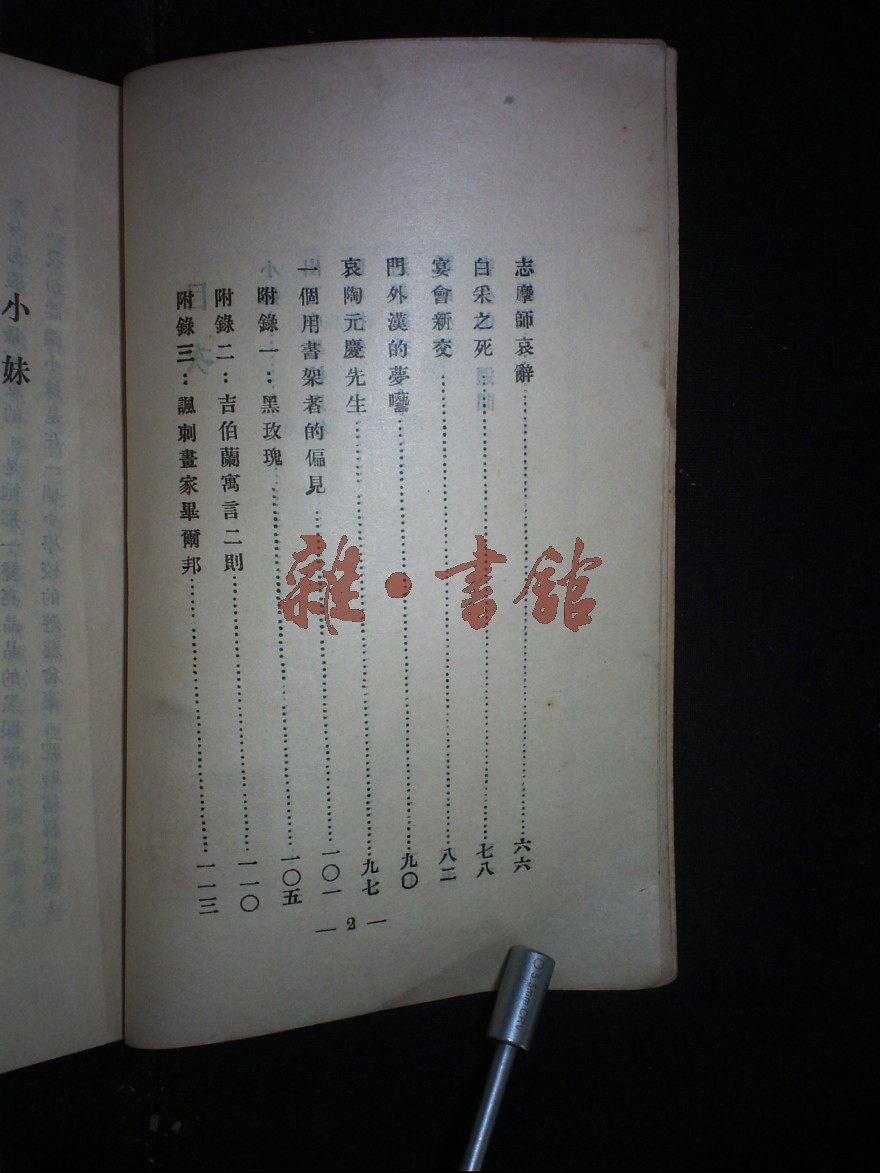 志摩師哀辭……六六
白采之死……七八
宴會新交……八二
門外漢的夢囈……九〇
哀陶元慶先生……九七
一個用書架者的偏見……一〇一
附錄一：黑玫瑰……一〇五
附錄二：吉伯蘭寓言二則……一一〇
附錄三：諷刺畫家畢爾邦……一一三
— 2 —
小妹
雜·書館
5.5mm CRV